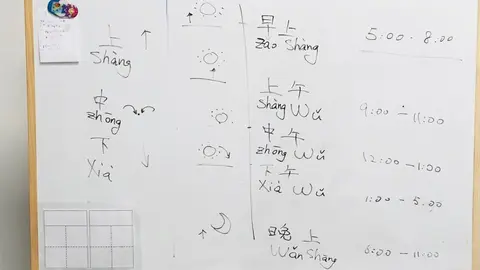 上
shàng
中
zhōng
下
xià
早上
zǎo shàng
5:00 - 8:00
上午
shàng wǔ
9:00 - 11:00
中午
zhōng wǔ
12:00 - 1:00
下午
xià wǔ
1:00 - 5:00
晚上
wǎn shàng
6:00 - 11:00